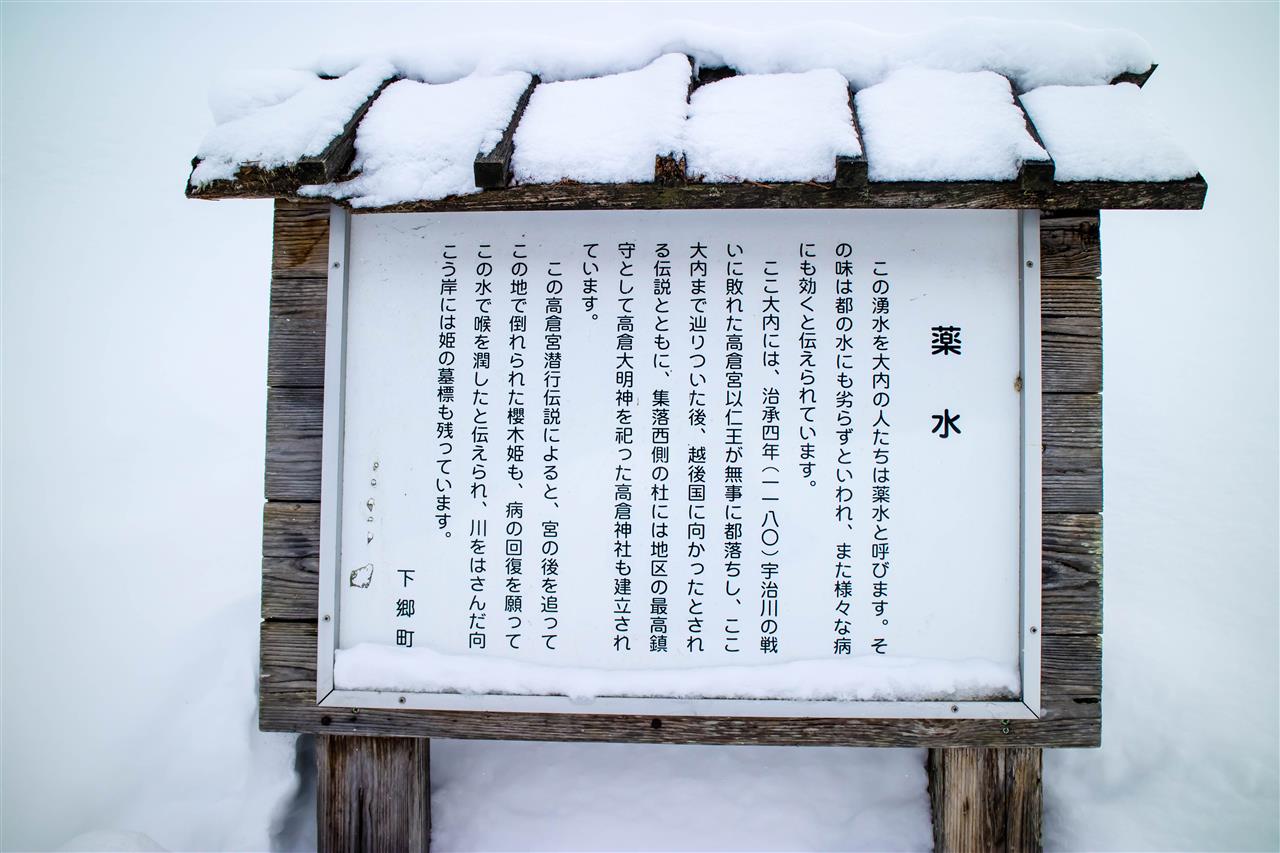 薬水
この湧水を大内の人たちは薬水と呼びます。そ
の味は都の水にも劣らずといわれ、また様々な病
にも効くと伝えられています。
ここ大内には、治承四年(一一八〇)宇治川の戦
いに敗れた高倉宮以仁王が無事に都落ちし、ここ
大内まで辿りついた後、越後国に向かったとされ
る伝説とともに、集落西側の杜には地区の最高鎮
守として高倉大明神を祀った高倉神社も建立され
ています。
この高倉宮潜行伝説によると、宮の後を追って
この地で倒れられた櫻木姫も、病の回復を願って
この水で喉を潤したと伝えられ、川をはさんだ向
こう岸には姫の墓標も残っています。
下郷町